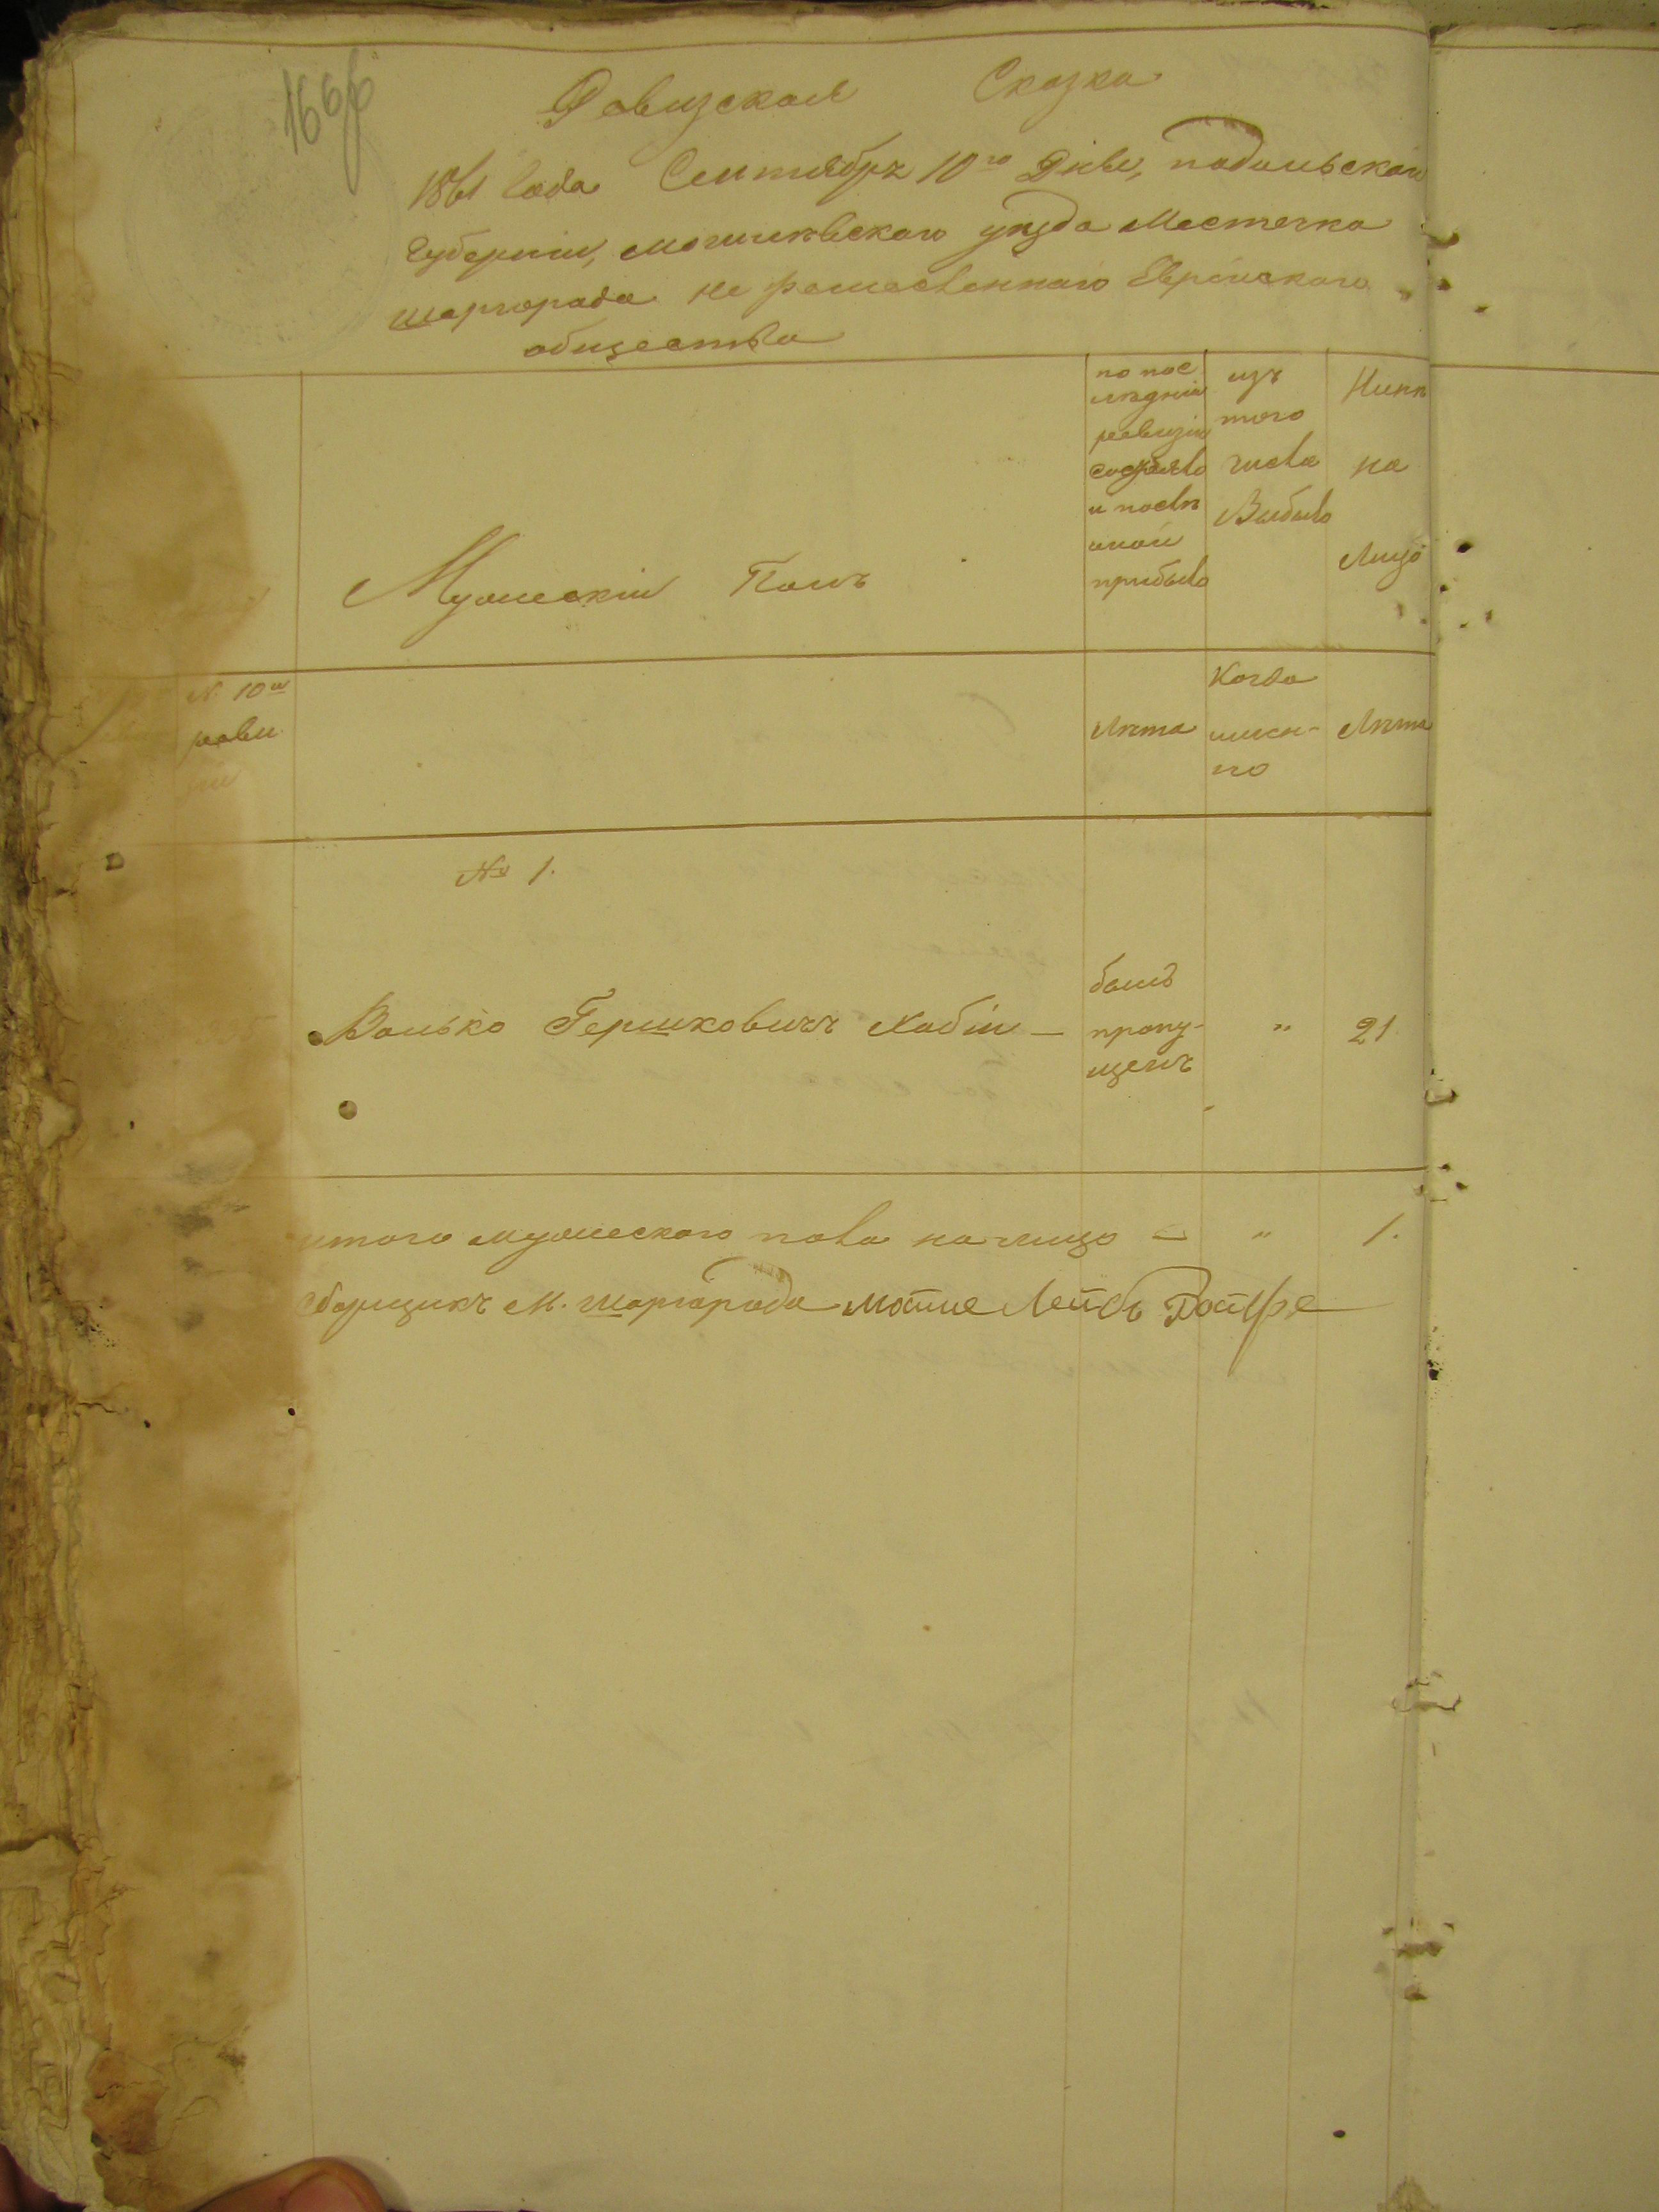 166
Ревизская Сказка
1861 Года Сентября 10го Дня, подольской
Губернии, могилевского уѣзда Местечка
шаргорода не ремесленного Еврейского
общества
по пос
лѣдней
ревизии
состояло
и послѣ
оной
прибыло
изъ
того
числа
Выбыло
Нынѣ
на
Лицо
Мужескiй Полъ
№ 10й
реви
зiи
Лѣта
Когда
имен-
но
Лѣта
№ 1.
Волько Гершковичъ Хабiн —
былъ
пропу-
щенъ
"
21
итого мужеского пола налицо — " 1.
Сборщикъ М. шаргорода